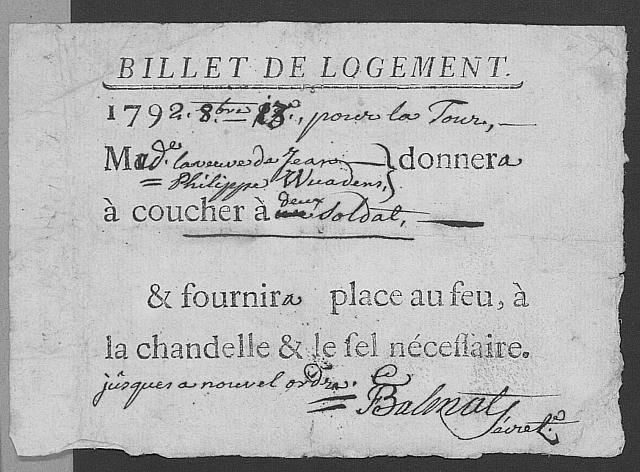 BILLET DE LOGEMENT.
1792. 8.bre 13.e, pour la Tour,
Mad.e la veuve de Jean
Philippe Wuadens, } donnera
à coucher à deux Soldat,
& fournira place au feu, à
la chandelle & le sel nécessaire.
jusques a nouvel ordre.
Balmat
Sécret.e